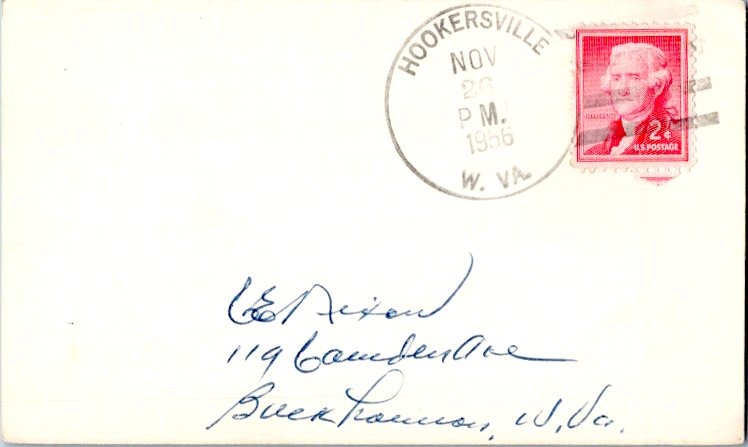 HOOKERSVILLE
NOV
26
P M.
1956
W. VA.
2¢
U.S. POSTAGE
CE Nixon
119 Camden Ave
Buckhannon, W. Va.